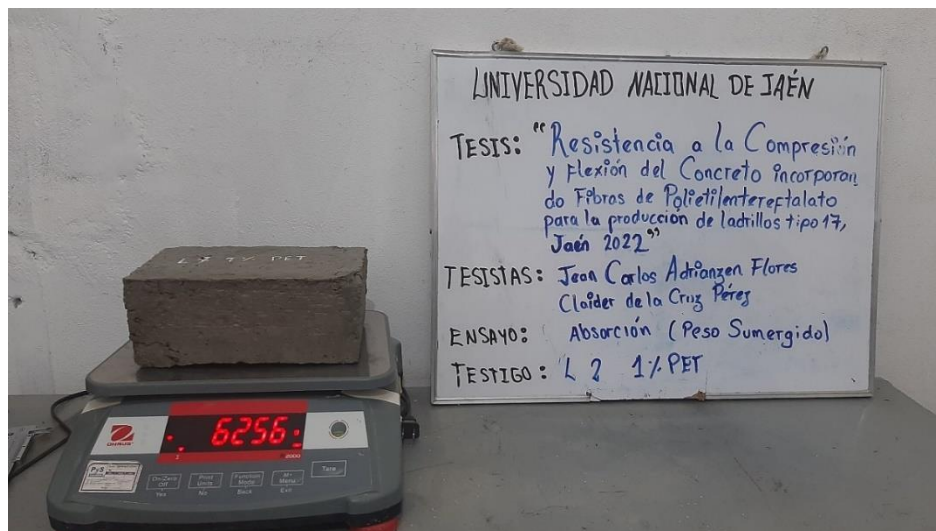 UNIVERSIDAD NACIONAL DE JAÉN
TESIS: "Resistencia a la Compresión
y Flexión del Concreto incorporan
do Fibras de Polietilentereftalato
para la producción de ladrillos tipo 17,
Jaén 2022"
TESISTAS: Jean Carlos Adrianzen Flores
Claider de la Cruz Pérez
ENSAYO: Absorción (Peso Sumergido)
TESTIGO: L 2 1% PET
1% PET
OHAUS
6256
PyS
On/Zero
Off
Yes
Print
Units
No
Function
Mode
Back
M+
Menu
Exit
Tare